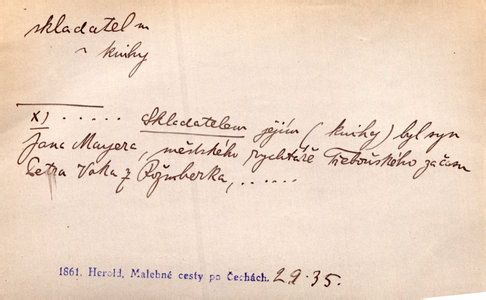 skladatel m
~ knihy
x) . . . . . Skladatelem jejím (knihy) byl syn
Jana Mayera, městského rychtáře Třeboňského za času
Petra Voka z Rožmberka, . . . . . .
1861. Herold, Malebné cesty po Čechách. 29.35.